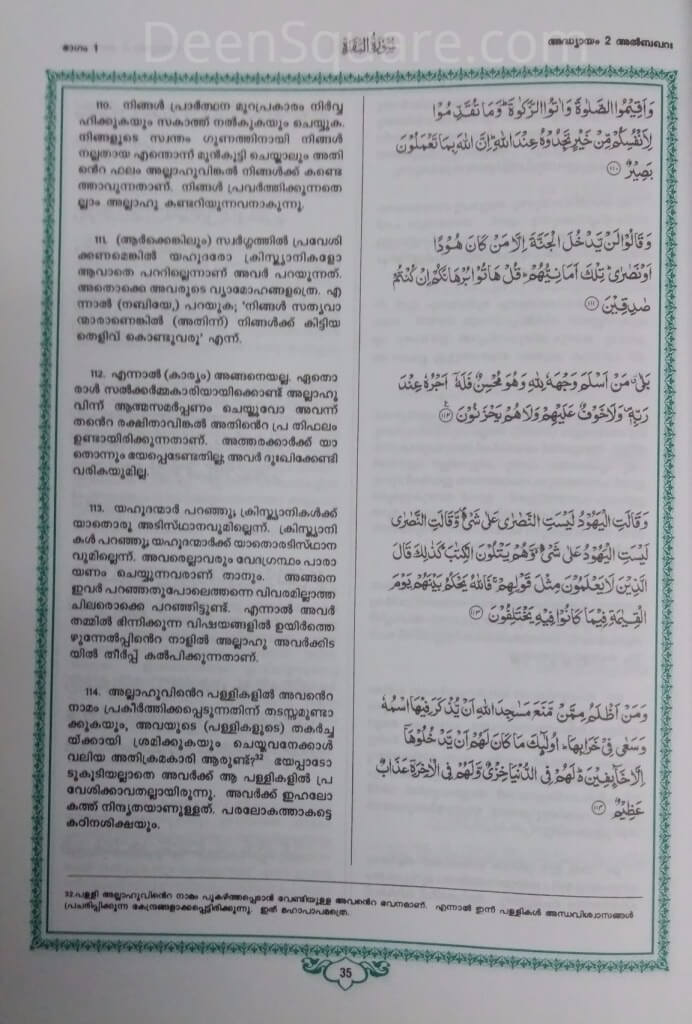 DeenSquare.com
ഭാഗം 1
سُورَةُ البَقَرَة
അദ്ധ്യായം 2 അൽബഖറഃ
110. നിങ്ങൾ പ്രാർത്ഥന മുറപ്രകാരം നിർവ്വ
ഹിക്കുകയും സകാത്ത് നൽകുകയും ചെയ്യുക.
നിങ്ങളുടെ സ്വന്തം ഗുണത്തിനായി നിങ്ങൾ
നല്ലതായ എന്തൊന്ന് മുൻകൂട്ടി ചെയ്താലും അതി
ൻറെ ഫലം അല്ലാഹുവിങ്കൽ നിങ്ങൾക്ക് കണ്ടെ
ത്താവുന്നതാണ്. നിങ്ങൾ പ്രവർത്തിക്കുന്നതെ
ല്ലാം അല്ലാഹു കണ്ടറിയുന്നവനാകുന്നു.
111. (ആർക്കെങ്കിലും) സ്വർഗ്ഗത്തിൽ പ്രവേശി
ക്കണമെങ്കിൽ യഹൂദരോ ക്രിസ്ത്യാനികളോ
ആവാതെ പററില്ലെന്നാണ് അവർ പറയുന്നത്.
അതൊക്കെ അവരുടെ വ്യാമോഹങ്ങളത്രെ. എ
ന്നാൽ (നബിയേ,) പറയുക; 'നിങ്ങൾ സത്യവാ
ന്മാരാണെങ്കിൽ (അതിന്ന്) നിങ്ങൾക്ക് കിട്ടിയ
തെളിവ് കൊണ്ടുവരൂ' എന്ന്.
112. എന്നാൽ (കാര്യം) അങ്ങനെയല്ല. ഏതൊ
രാൾ സൽക്കർമ്മകാരിയായിക്കൊണ്ട് അല്ലാഹു
വിന്ന് ആത്മസമർപ്പണം ചെയ്തുവോ അവന്ന്
തൻറെ രക്ഷിതാവിങ്കൽ അതിൻറെ പ്ര തിഫലം
ഉണ്ടായിരിക്കുന്നതാണ്. അത്തരക്കാർക്ക് യാ
തൊന്നും ഭയപ്പെടേണ്ടതില്ല; അവർ ദുഃഖിക്കേണ്ടി
വരികയുമില്ല.
113. യഹൂദന്മാർ പറഞ്ഞു, ക്രിസ്ത്യാനികൾക്ക്
യാതൊരു അടിസ്ഥാനവുമില്ലെന്ന്. ക്രിസ്ത്യാനി
കൾ പറഞ്ഞു, യഹൂദന്മാർക്ക് യാതൊരടിസ്ഥാന
വുമില്ലെന്ന്. അവരെല്ലാവരും വേദഗ്രന്ഥം പാരാ
യണം ചെയ്യുന്നവരാണ് താനും. അങ്ങനെ
ഇവർ പറഞ്ഞതുപോലെത്തന്നെ വിവരമില്ലാത്ത
ചിലരൊക്കെ പറഞ്ഞിട്ടുണ്ട്. എന്നാൽ അവർ
തമ്മിൽ ഭിന്നിക്കുന്ന വിഷയങ്ങളിൽ ഉയിർത്തെ
ഴുന്നേൽപ്പിൻറെ നാളിൽ അല്ലാഹു അവർക്കിട
യിൽ തീർപ്പ് കൽപിക്കുന്നതാണ്.
114. അല്ലാഹുവിൻറെ പള്ളികളിൽ അവൻറെ
നാമം പ്രകീർത്തിക്കപ്പെടുന്നതിന്ന് തടസ്സമുണ്ടാ
ക്കുകയും, അവയുടെ (പള്ളികളുടെ) തകർച്ച
യ്ക്കായി ശ്രമിക്കുകയും ചെയ്തവനേക്കാൾ
വലിയ അതിക്രമകാരി ആരുണ്ട്?³² ഭയപ്പാടോ
ടുകൂടിയല്ലാതെ അവർക്ക് ആ പള്ളികളിൽ പ്ര
വേശിക്കാവതല്ലായിരുന്നു. അവർക്ക് ഇഹലോ
കത്ത് നിന്ദ്യതയാണുള്ളത്. പരലോകത്താകട്ടെ
കഠിനശിക്ഷയും.
وَاَقِيْمُوا الصَّلٰوةَ وَاٰتُوا الزَّكٰوةَ ۚ وَمَا تُقَدِّمُوْا
لِاَنْفُسِكُمْ مِّنْ خَيْرٍ تَجِدُوْهُ عِنْدَ اللّٰهِ ؕ اِنَّ اللّٰهَ بِمَا تَعْمَلُوْنَ
بَصِيْرٌ ﴿١١٠﴾
وَقَالُوْا لَنْ يَّدْخُلَ الْجَنَّةَ اِلَّا مَنْ كَانَ هُوْدًا
اَوْ نَصٰرٰى ؕ تِلْكَ اَمَانِيُّهُمْ ؕ قُلْ هَاتُوْا بُرْهَانَكُمْ اِنْ كُنْتُمْ
صٰدِقِيْنَ ﴿١١١﴾
بَلٰى ۗ مَنْ اَسْلَمَ وَجْهَهٗ لِلّٰهِ وَهُوَ مُحْسِنٌ فَلَهٗٓ اَجْرُهٗ عِنْدَ
رَبِّهٖ ۪ وَلَا خَوْفٌ عَلَيْهِمْ وَلَا هُمْ يَحْزَنُوْنَ ﴿١١٢﴾
وَقَالَتِ الْيَهُوْدُ لَيْسَتِ النَّصٰرٰى عَلٰى شَيْءٍ ۪ وَّقَالَتِ النَّصٰرٰى
لَيْسَتِ الْيَهُوْدُ عَلٰى شَيْءٍ ۙ وَّهُمْ يَتْلُوْنَ الْكِتٰبَ ؕ كَذٰلِكَ قَالَ
الَّذِيْنَ لَا يَعْلَمُوْنَ مِثْلَ قَوْلِهِمْ ۚ فَاللّٰهُ يَحْكُمُ بَيْنَهُمْ يَوْمَ
الْقِيٰمَةِ فِيْمَا كَانُوْا فِيْهِ يَخْتَلِفُوْنَ ﴿١١٣﴾
وَمَنْ اَظْلَمُ مِمَّنْ مَّنَعَ مَسٰجِدَ اللّٰهِ اَنْ يُّذْكَرَ فِيْهَا اسْمُهٗ
وَسَعٰى فِيْ خَرَابِهَا ؕ اُولٰٓئِكَ مَا كَانَ لَهُمْ اَنْ يَّدْخُلُوْهَآ
اِلَّا خَآئِفِيْنَ ؕ لَهُمْ فِي الدُّنْيَا خِزْيٌ وَّلَهُمْ فِي الْاٰخِرَةِ عَذَابٌ
عَظِيْمٌ ﴿١١٤﴾
32.പള്ളി അല്ലാഹുവിൻറെ നാമം പുകഴ്ത്തപ്പെടാൻ വേണ്ടിയുള്ള അവൻറെ ഭവനമാണ്. എന്നാൽ ഇന്ന് പള്ളികൾ അന്ധവിശ്വാസങ്ങൾ
പ്രചരിപ്പിക്കുന്ന കേന്ദ്രങ്ങളാക്കപ്പെട്ടിരിക്കുന്നു. ഇത് മഹാപാപമത്രെ.
35